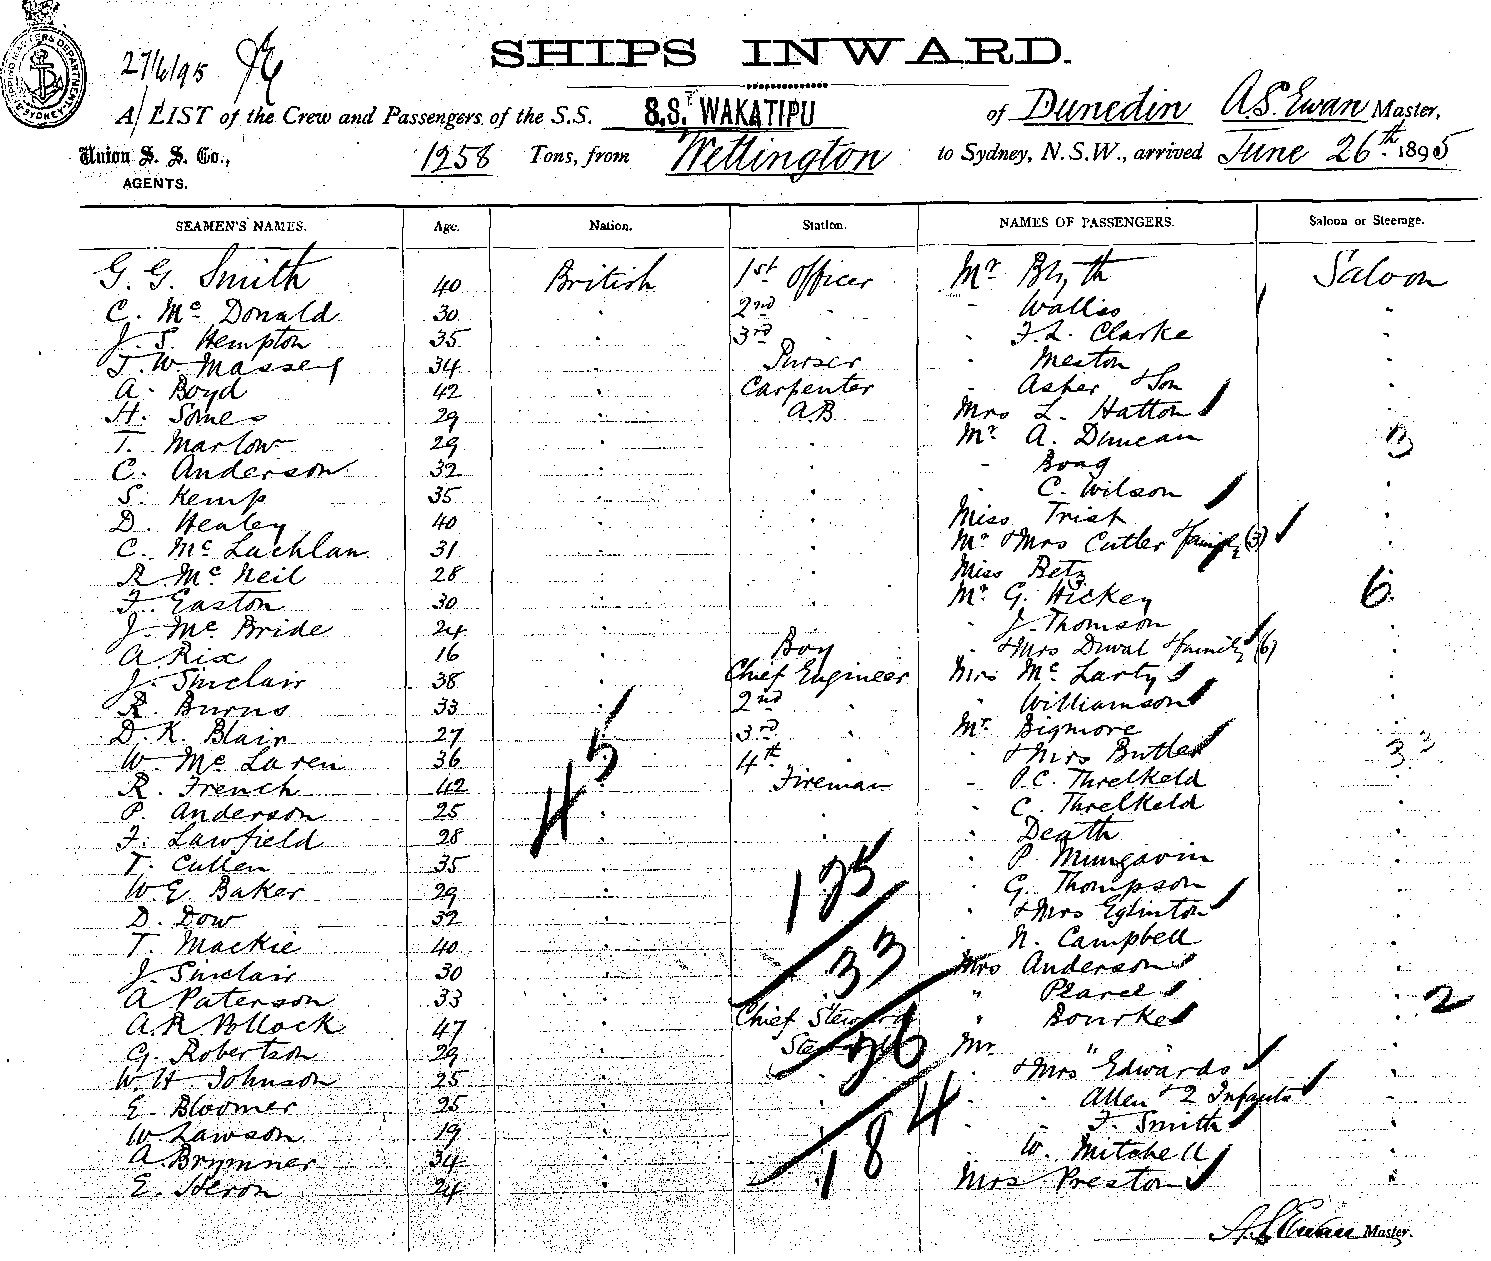 27/6/95
SHIPS INWARD.
A LIST of the Crew and Passengers of the S.S. S.S. WAKATIPU of Dunedin A.S. Ewan Master,
Union S. S. Co., 1258 Tons, from Wellington to Sydney, N.S.W., arrived June 26th 1895
AGENTS.
SEAMEN'S NAMES. Age. Nation. Station. NAMES OF PASSENGERS. Saloon or Steerage.
G. G. Smith 40 British 1st Officer Mr Blyth Saloon
C. Mc Donald 30 " 2nd " " Wallis "
J. S. Hempton 35 " 3rd " " F.L. Clarke "
T. W. Massey 34 " Purser " Meston "
A. Boyd 42 " Carpenter " Asher & Son "
H. Somes 29 " A.B. Mrs L. Hatton "
T. Marlow 29 " " Mr A. Duncan 3
C. Anderson 32 " " " Boag "
S. Kemp 35 " " " C. Wilson "
D. Healey 40 " " Miss Trist "
C. Mc Lachlan 31 " " Mr & Mrs Cutler & family (3) "
R. Mc Neil 28 " " Miss Betz "
F. Easton 30 " " Mr G. Hickey 6
J. Mc Bride 24 " " " J. Thomson "
A Rix 16 " Boy " & Mrs Duval & family (6) "
J. Sinclair 38 " Chief Engineer Mrs Mc Larty "
R. Burns 33 " 2nd " " Williamson "
D. K. Blair 27 " 3rd " Mr Bigmore "
W. Mc Laren 36 " 4th " " & Mrs Butler 3
R. French 42 " Fireman " P.C. Threlkeld "
P. Anderson 25 " " " C. Threlkeld "
F. Lawfield 28 " " " Death "
T. Cullen 35 " " P. Mungavin "
W E. Baker 29 " " G. Thompson "
D. Dow 32 " " & Mrs Eglinton "
T. Mackie 40 " " N. Campbell "
J. Sinclair 30 " " Mrs Anderson "
A Paterson 33 " " " Pearce "
A. R. Pollock 47 " Chief Steward " Bourke " 2
G. Robertson 29 " Mr " "
W. H. Johnson 25 " " " & Mrs Edwards "
E. Bloomer 25 " " " " Allen & 2 Infants "
W. Lawson 19 " " " " F. Smith "
A. Brymner 34 " " " W. Mitchell "
E. Heron 24 " " Mrs Preston "
45
125
33
26
184
A S Ewan Master.